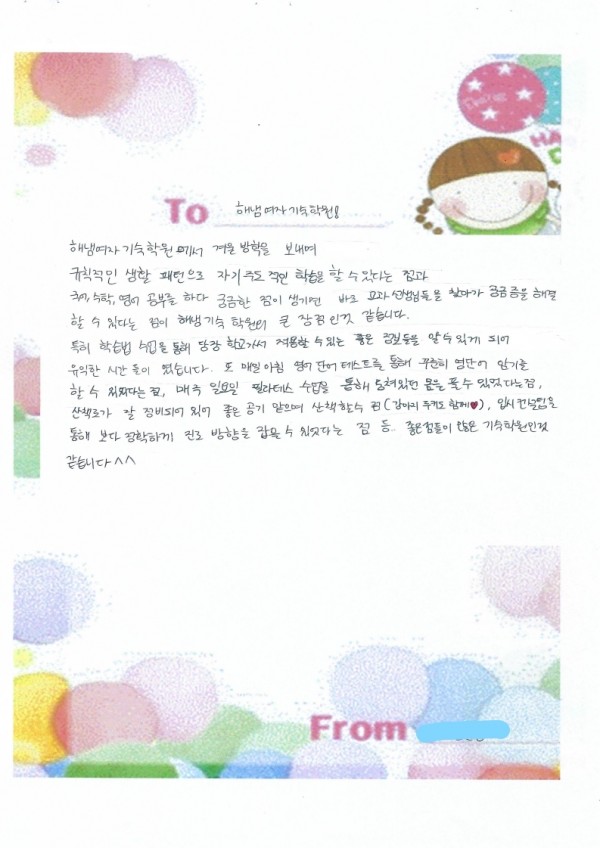 To 해냄여자기숙학원
해냄여자기숙학원에서 겨울 방학을 보내며
규칙적인 생활 패턴으로 자기주도적인 학습을 할 수 있다는 점과
국어, 수학, 영어 공부를 하다 궁금한 점이 생기면 바로 교과 선생님들을 찾아가 궁금증을 해결
할 수 있다는 점이 해냄 기숙학원의 큰 장점인것 같습니다.
특히 학습법 수업을 통해 당장 학교가서 적용할 수 있는 좋은 점들을 알 수 있게 되어
유익한 시간들이 됐습니다. 또 매일아침 영어 단어 테스트를 통해 꾸준히 영단어 암기를
할 수 있었다는 점, 매주 일요일 필라테스 수업을 통해 뭉쳐있던 몸을 풀 수 있었다는 점,
산책로가 잘 정비되어 있어 좋은 공기 맡으며 산책할 수 점(강아지 두기도 함께♥), 입시 컨설팅을
통해 보다 정확하게 진로 방향을 잡을 수 있었다는 점 등 좋은점들이 많은 기숙학원인것
같습니다^^
From